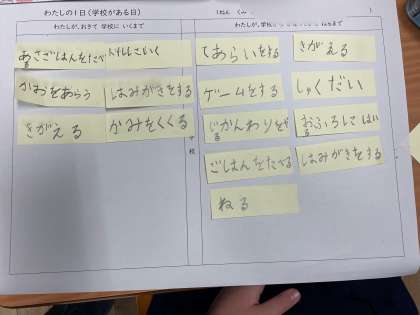 わたしの1日(学校がある日)
1ねん くみ
わたしが、おきて 学校に いくまで
あさごはんをたべる
トイレにいく
かおをあらう
はみがきをする
きがえる
かみをくくる
学校
わたしが、学校 ねるまで
てあらいをする
きがえる
ゲームをする
しゅくだい
じかんわりを
おふろに はいる
ごはんをたべる
はみがきをする
ねる